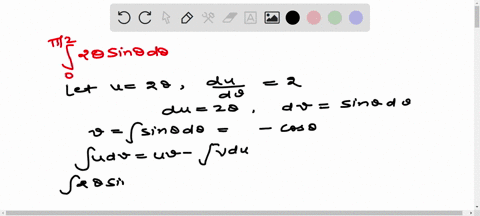 ∫₀^π/2 2θ sinθ dθ
Let u = 2θ, du/dθ = 2
du = 2θ, dv = sinθ dθ
v = ∫ sinθ dθ = - cosθ
∫ u dv = uv - ∫ v du
∫ 2θ sin